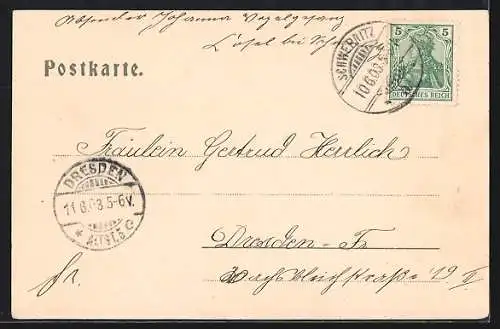 Absender Johanna Vogelgesang
Cosel bei
Postkarte.
SCHWEPNITZ
10.6.03.5
5 5
DEUTSCHES REICH
Fräulein Gertrud Herrlich
DRESDEN
11.6.03.5-6V.
Dresden-Fr.
Wachsbleichstraße 19 II
fr.